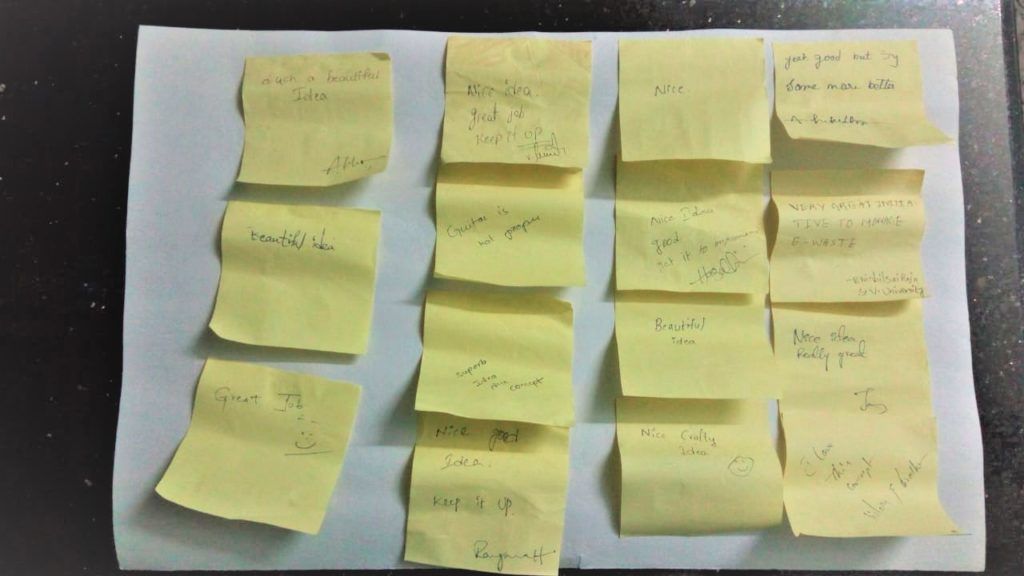 Such a beautiful
Idea
Beautiful idea
Great Job
Nice idea.
great job
Keep it up
Guitar is
not proper
Superb
Idea
concept
Nice good
Idea.
Keep it up.
Nice.
Nice Idea
good
get it to
Beautiful
idea
Nice Crafty
Idea
good but try
Some more better
VERY GREAT INITIA
TIVE TO MANAGE
E-WASTE
S.V. University
Nice idea
Really good
I love
this
concept